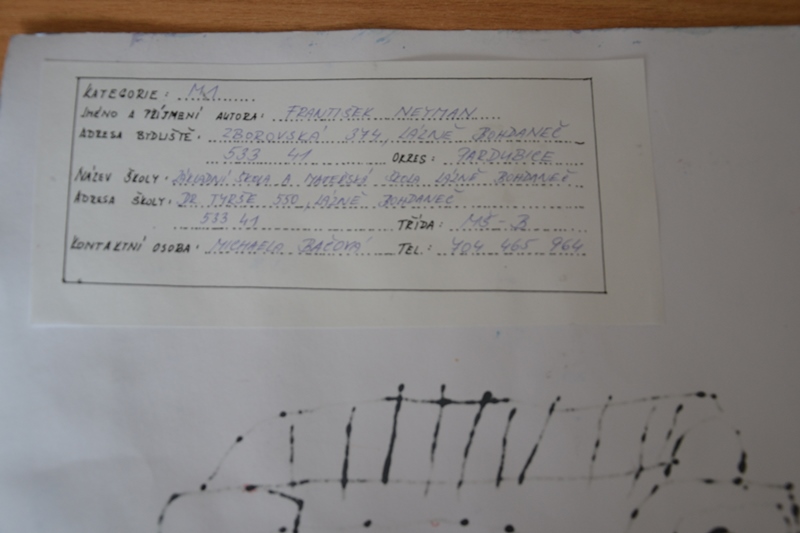 KATEGORIE: M1
JMÉNO A PŘÍJMENÍ AUTORA: FRANTIŠEK NEYMAN
ADRESA BYDLIŠTĚ: ZBOROVSKÁ 374, LÁZNĚ BOHDANEČ
533 41 OKRES: PARDUBICE
NÁZEV ŠKOLY: ZÁKLADNÍ ŠKOLA A MATEŘSKÁ ŠKOLA LÁZNĚ BOHDANEČ
ADRESA ŠKOLY: DR. TYRŠE 550, LÁZNĚ BOHDANEČ
533 41 TŘÍDA: MŠ - B
KONTAKTNÍ OSOBA: MICHAELA BAČOVÁ TEL: 704 465 964